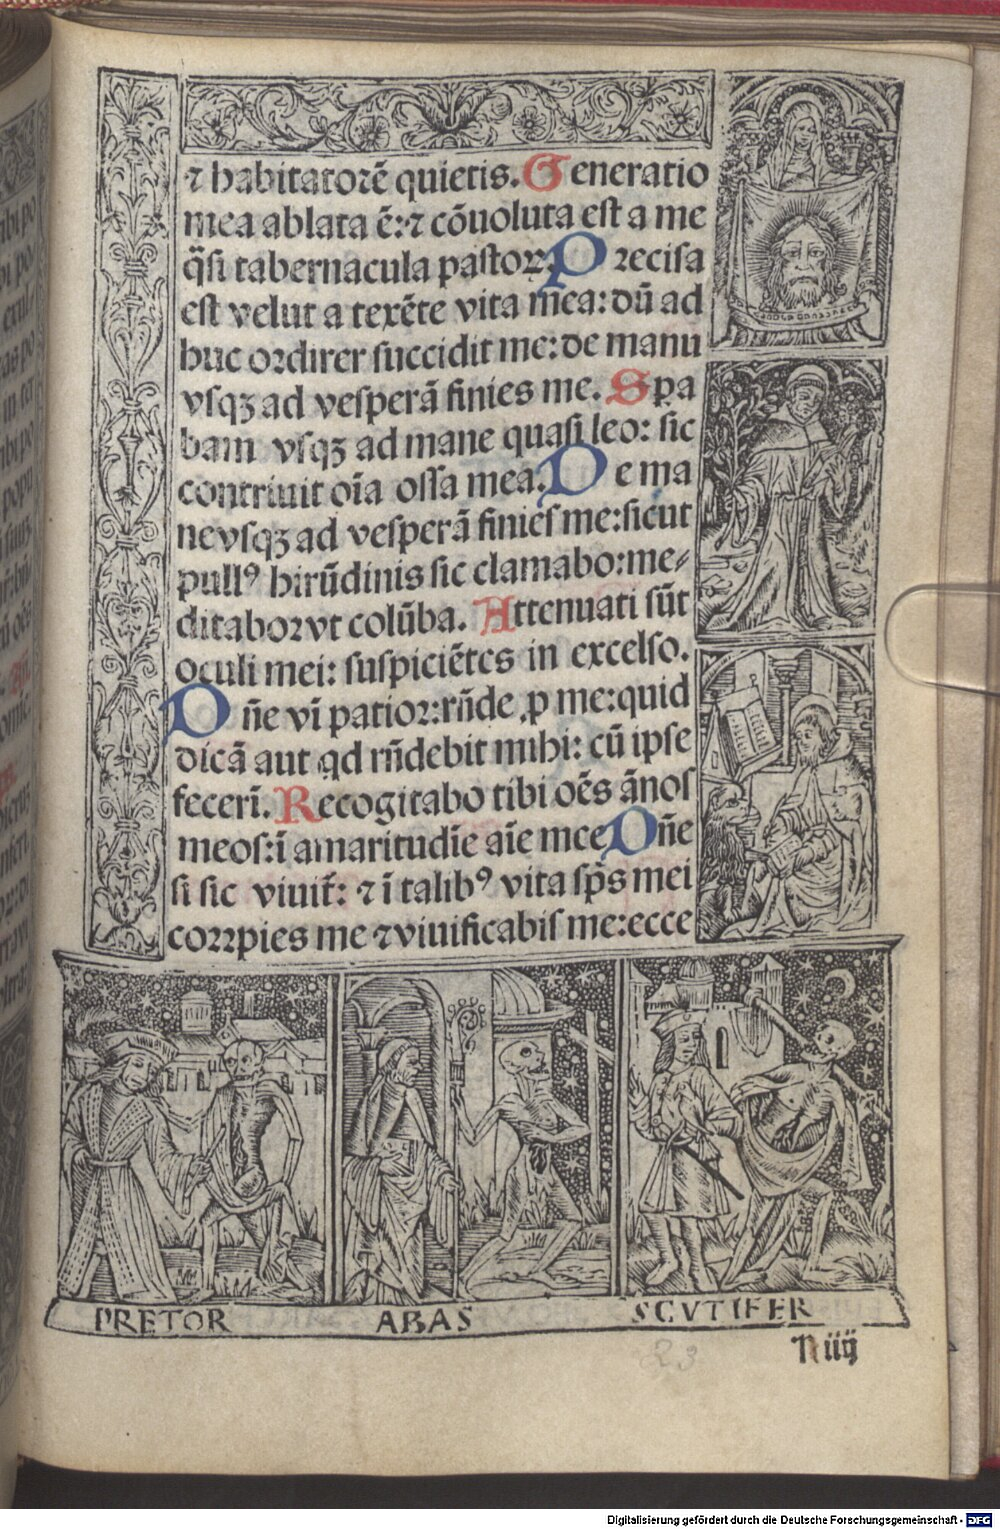 ⁊ habitatorē quietis. Generatio
mea ablata ē: ⁊ cōuoluta est a me
q̄si tabernacula pastoꝝ. Precisa
est velut a texēte vita mea: dū ad
huc ordirer succidit me: de manu
vsqꝫ ad vesperā finies me. Spa
bam vsqꝫ ad mane quasi leo: sic
contriuit oīa ossa mea. De ma
ne vsqꝫ ad vesperā finies me: sicut
pullꝰ hirūdinis sic clamabo: me⸗
ditabor vt colūba. Attenuati sūt
oculi mei: suspiciētes in excelso.
Dn̄e vī patior: rn̄de ꝓ me: quid
dicā aut qd rn̄debit mihi: cū ipse
fecerī. Recogitabo tibi oēs ānos
meos: ī amaritudīe aīe mee Dn̄e
si sic viuit̄: ⁊ ī talibꝰ vita sp̄s mei
corrpies me ⁊ viuificabis me: ecce
PRETOR ABAS SCVTIFER
N iiij
23
Digitalisierung gefördert durch die Deutsche Forschungsgemeinschaft - DFG